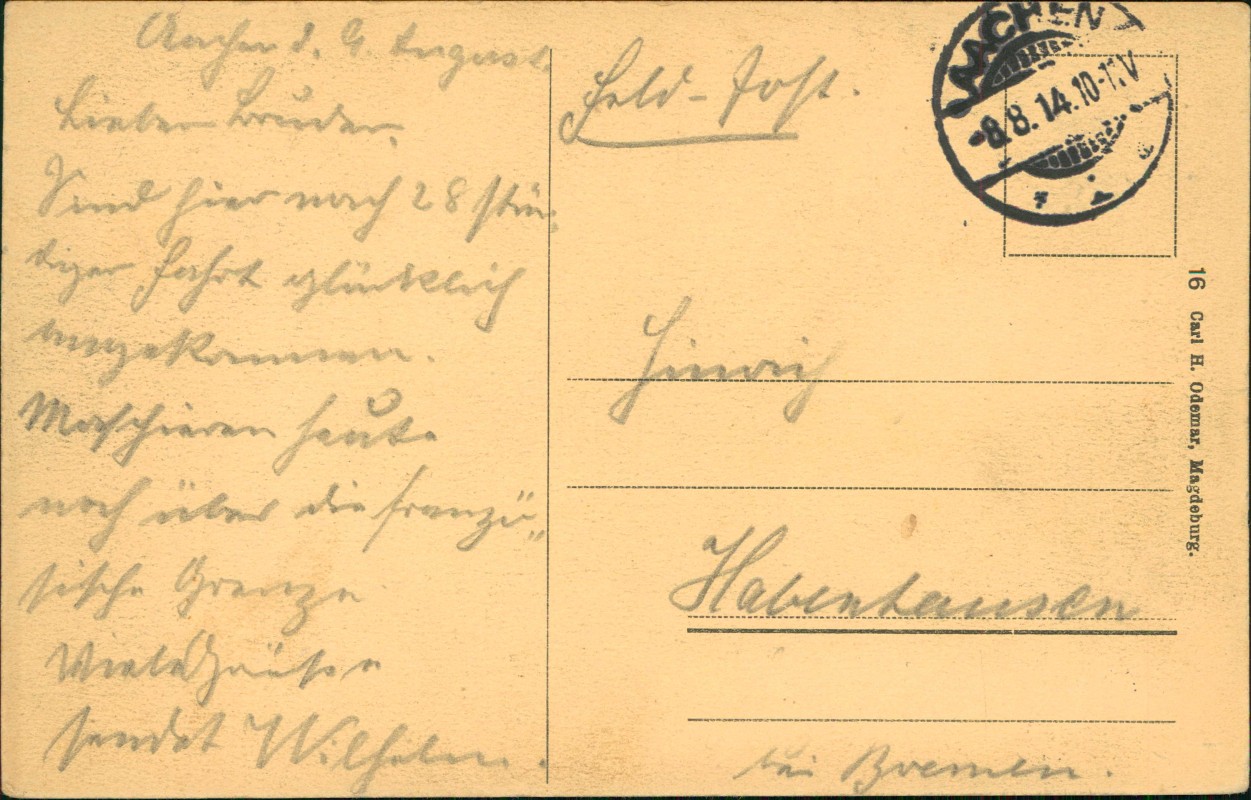 Aachen d. 9. August.
Lieber Bruder,
Sind hier nach 28 stün-
diger Fahrt glücklich
angekommen.
Marschieren heute
noch über die französ"
sische Grenze
Viele Grüße
sendet Wilhelm.
Feld-Post.
AACHEN
-8.8.14.10-11V
Hinrich
Habenhausen
bei Bremen.
16 Carl H. Odemar, Magdeburg.